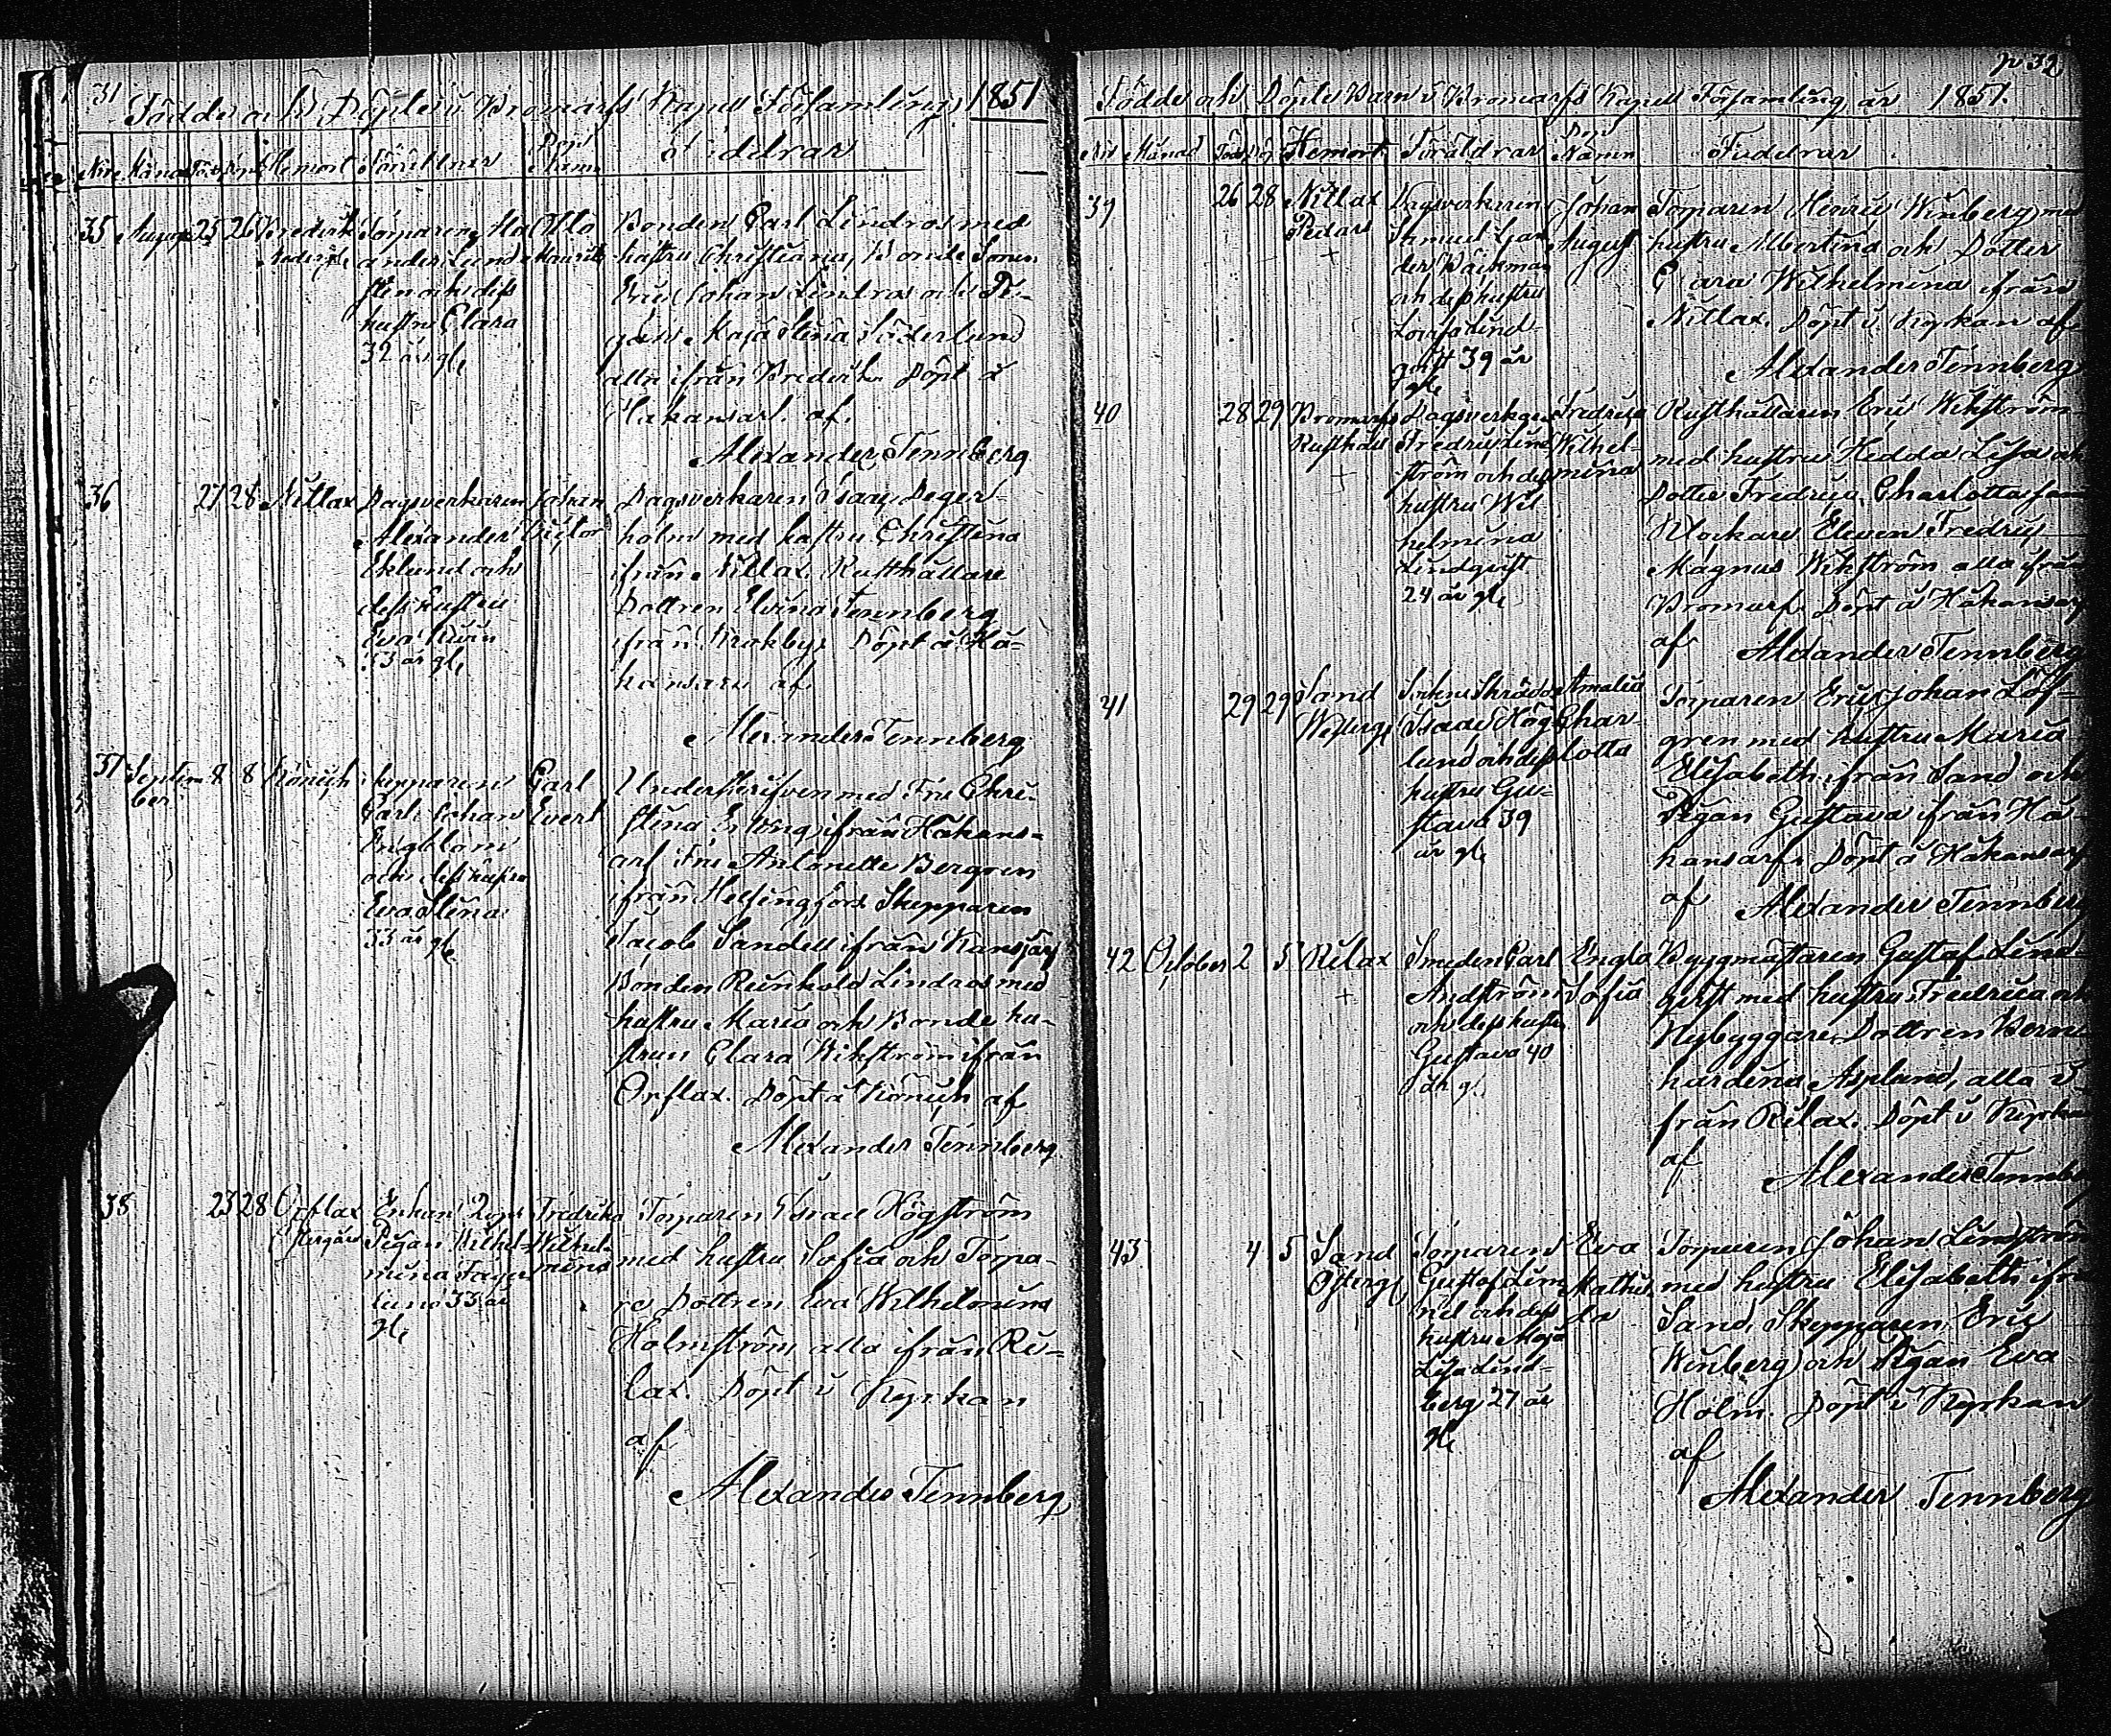 31
Födde och Döpte i Bromarfs Kapell Församling 1851
Nro Månad Född Döpt Hemort Föräldrar Dop Namn Fäddrar
35 Augusti 25 26
Torparen
och dess
hustru Clara
32 år gl
Otto
Mauritz
Bonden Carl Lindros med
hustru Christiana, Bonde Sonen
Eric Johan Lindros och Pi-
gan Maja Stina Söderlund
alla ifrån Döpt å
Håkansarf af
Alexander Tennberg
36 27 28 Nitlax
Dagsverkaren
Alexander
Eklund och
dess hustru
Eva
33 år gl
Johan
Victor
Dagsverkaren Isaac Deger-
holm med hustru Christina
ifrån Nitlax, Rusthållare
Dottren Elvina Tennberg
ifrån Krokby. Döpt å Hå-
kansarf af
Alexander Tennberg
37 Septem
ber 8 8
Skepparen
Carl Johan
Engblom
och dess hustru
Eva Stina
33 år gl
Carl
Evert
Underskrifven med Fru Chri-
stina ifrån Håkans-
arf Fru Antonette Bergren
ifrån Helsingfors Skepparen
Jacob Sandell ifrån Kansjärf
Bonden Reinhold Lindros med
hustru Maria och Bonde hu-
strun Clara Wikström ifrån
Orslax. Döpt å af
Alexander Tennberg
38 23 28 Orslax
Östergård
Enkan
Pigan Wilhel-
mina Fager
lund 33 år
gl
Fredrika
Wilhel-
mina
Torparen Isaac Högström
med hustru Sofia och Torpa-
re Dottren Eva Wilhelmina
Holmström, alla ifrån Ri-
lax. Döpt i Kyrkan
af
Alexander Tennberg
p 32
Födde och Döpte Barn i Bromarfs Kapell Församling år 1851.
Nro Månad Född Döpt Hemort Föräldrar Dop Namn Faddrar
39 26 28 Nitlax
Pedars
Dagsverkaren
Samuel
Bäckman
och dess hustru
Lovisa Lind-
qvist 39 år
gl
Johan
August
Torparen Henric Winberg med
hustru Albertina och Dotter
Clara Wilhelmina ifrån
Nitlax. Döpt i Kyrkan af
Alexander Tennberg
40 28 29 Bromarfs
Rusthåll
Dagsverkaren
Fredric Lind
ström och dess
hustru Wil
helmina
Lindqvist
24 år gl
Fredrica
Wilhel-
mina
Rusthållaren Eric Wikström
med hustru Hedda Lisa och
Dotter Fredrica Charlotta samt
Klockare Eleven Fredric
Magnus Wikström alla ifrån
Bromarf. Döpt å Håkansarf
af Alexander Tennberg
41 29 29 Sand
Westerg
Sockne Skräddare
Isaac Hög
lund och dess
hustru Gu-
stava 39
år gl
Amalia
Char-
lotta
Torparen Eric Johan Löf-
gren med hustru Maria
Elisabeth ifrån Sand och
Pigan Gustava ifrån Hå-
kansarf. Döpt å Håkansarf
af Alexander Tennberg
42 October 2 5 Rilax
Smeden Carl
Andström
och dess hustru
Gustava 40
år gl.
Engla
Sofia
Byggmästaren Gustaf Lind-
qvist med hustru Fredrica och
Nybyggare Dottren Bern-
hardina Asplund, alla i-
från Rilax. Döpt i Kyrkan
af
Alexander Tennberg
43 4 5 Sand
Österg
Torparen
Gustaf Lin
och dess
hustru Maja
Lisa Lind-
berg 27 år
gl
Eva
Mathil-
da
Torparen Johan Lindström
med hustru Elisabeth ifrån
Sand, Skepparen Eric
Winberg och Pigan Eva
Holm. Döpt i Kyrkan
af
Alexander Tennberg